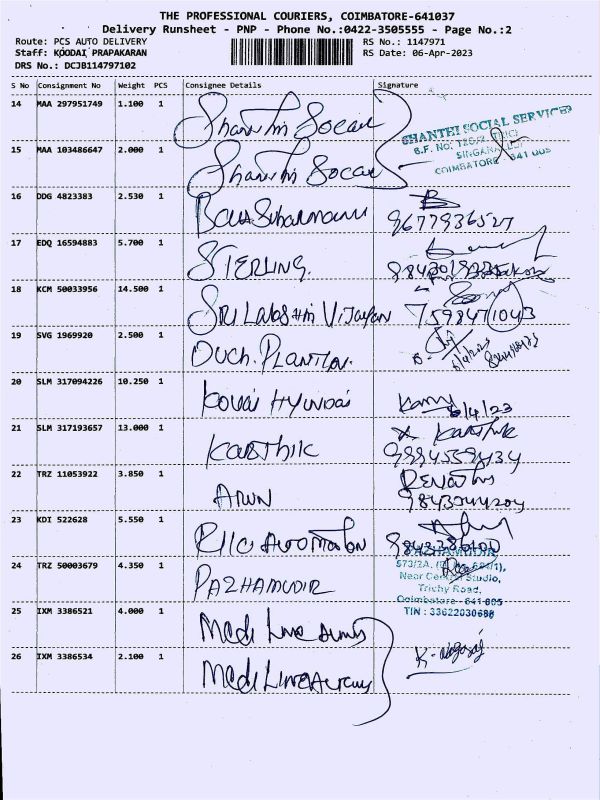 THE PROFESSIONAL COURIERS, COIMBATORE-641037
Delivery Runsheet - PNP - Phone No.:0422-3505555 - Page No.:2
Route: PCS AUTO DELIVERY
RS No.: 1147971
Staff: KOODAI PRAPAKARAN
RS Date: 06-Apr-2023
DRS No.: DCJB114797102
S No Consignment No Weight PCS Consignee Details Signature
14 MAA 297951749 1.100 1 Shanthi Social
SHANTHI SOCIAL SERVICES
SINGANALLUR
COIMBATORE 641 005
15 MAA 103486647 2.000 1 Shanthi Social
16 DDG 4823383 2.530 1 Balasubramani
9677936527
17 EDQ 16594883 5.700 1 STERLING.
18 KCM 50033956 14.500 1 SRI Lakshmi Vijayan
7598471043
19 SVG 1969920 2.500 1
6/4/2023
20 SLM 317094226 10.250 1 Kovai Hyundai
6/4/23
21 SLM 317193657 13.000 1 KARTHIK
Karthik
9994559434
22 TRZ 11053922 3.850 1 ARUN
9843044204
23 KDI 522628 5.550 1 Automation
24 TRZ 50003679 4.350 1 PAZHAMUDIR
PAZHAMUDIR
573/2A,
Near Central Studio,
Trichy Road,
Coimbatore - 641 005
TIN : 33622030688
25 IXM 3386521 4.000 1 Medi Line
26 IXM 3386534 2.100 1 Medi Line
K. Nagaraj